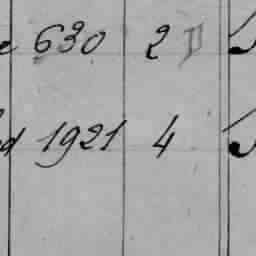 630 2
1921 4